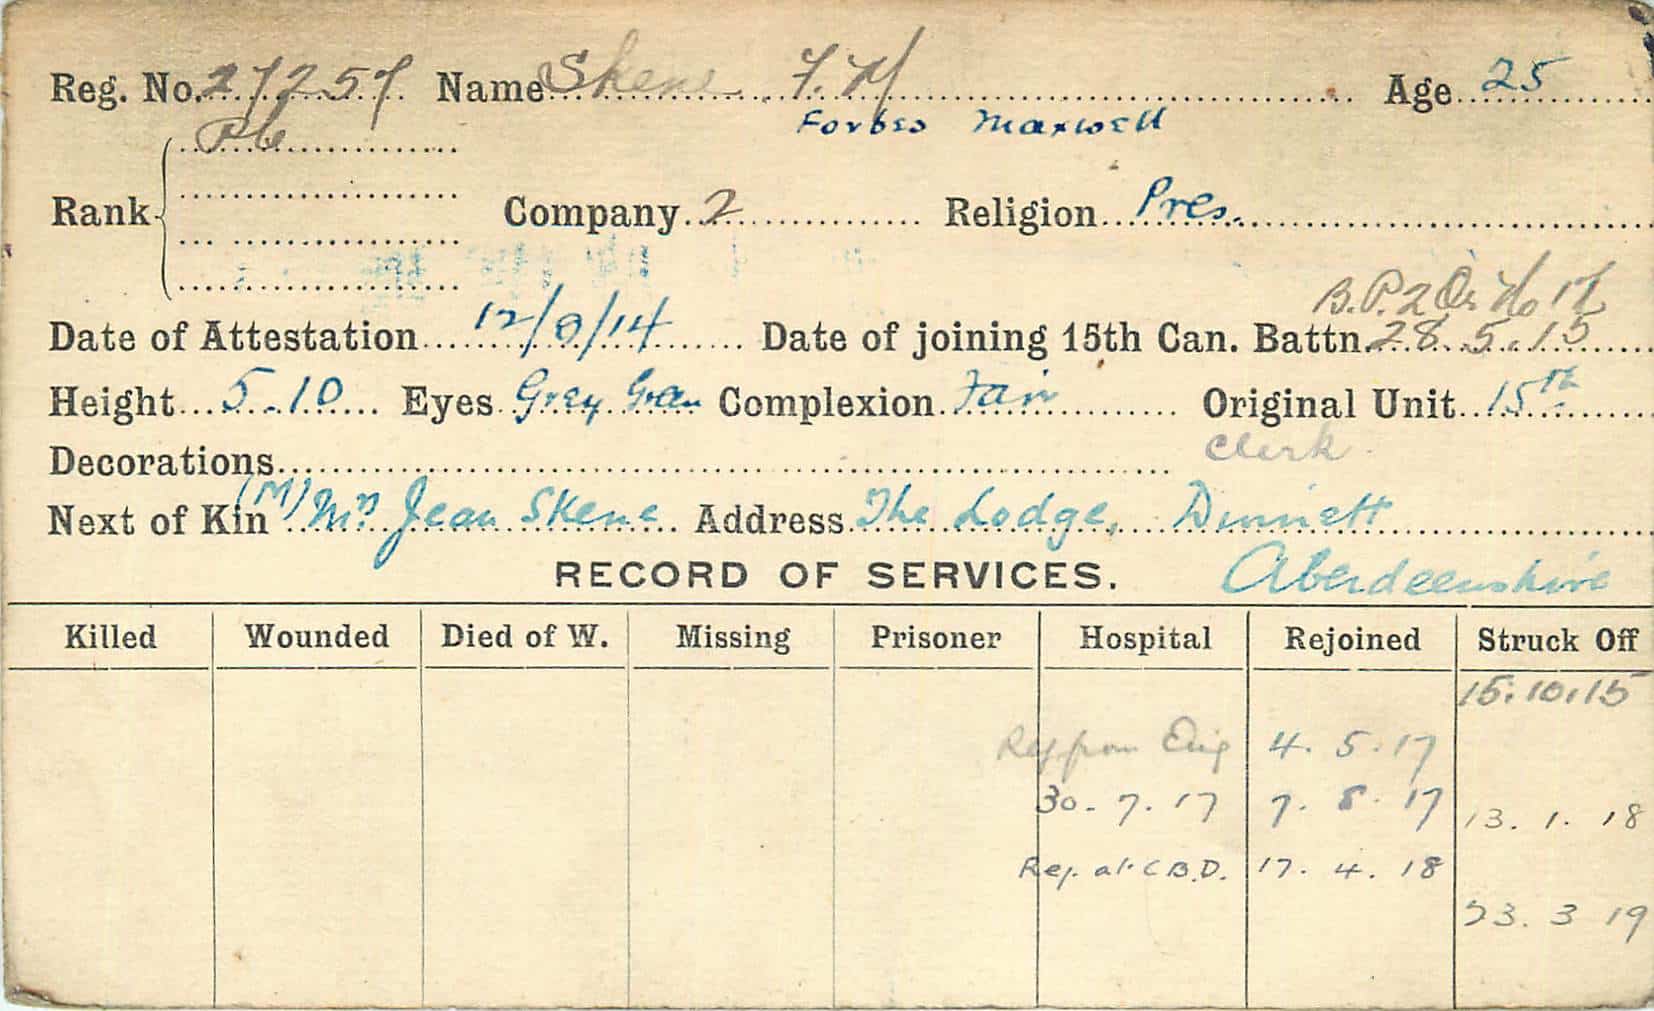 Reg. No. 27257 Name Skene F. M Age 25
Forbes Maxwell
Pte
Rank Company 2 Religion Pres.
B.P. 2 Or No 17
Date of Attestation 12/9/14 Date of joining 15th Can. Battn. 28.5.15
Height 5.10 Eyes Grey Complexion Fair Original Unit 15th
Decorations Clerk
Next of Kin (M) Mrs Jean Skene Address The Lodge, Dinnett
Aberdeenshire
RECORD OF SERVICES.
Killed Wounded Died of W. Missing Prisoner Hospital Rejoined Struck Off
15.10.15
from Eng 4. 5. 17
30. 7. 17 7. 8. 17 13. 1. 18
Rej. at C.B.D. 17. 4. 18
23. 3 19